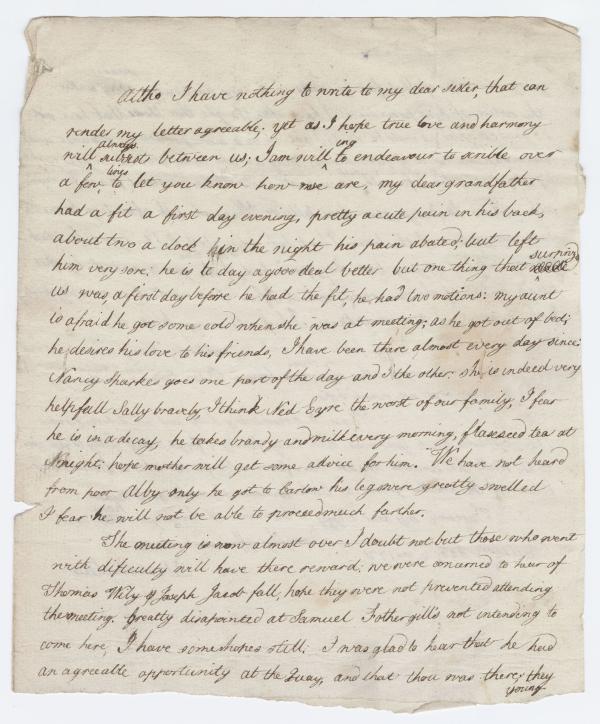 Altho I have nothing to write to my dear sister, that can
render my letter agreeable; yet as I hope true love and harmony
always
will subsist between us; I am willing to endeavour to scrible over
lines
a few to let you know how we are, my dear grandfather
had a fit a first day evening, pretty acute pain in his back,
about two a clock in the night his pain abated; but left
him very sore; he is to day a good deal better but one thing that
surprizd
us was, a first day before he had the fit, he had two motions: my aunt
is afraid he got some cold when she was at meeting; as he got out of bed;
he desires his love to his friends, I have been there almost every day since:
Nancy Sharkes goes one part of the day and I the other: she is indeed very
helpfull Sally bravely I think Ned Eyre the worst of our family, I fear
he is in a decay, he takes brandy and milk every morning, flaxseed tea at
night: hope mother will get some advice for him. We have not heard
from poor Alby only he got to Carlow his legs were greatly swelled
I fear he will not be able to proceed much farther.
The meeting is now almost over I doubt not but those who went
with dificulty will have there reward; we were concerned to hear of
Thomas Wily & Joseph Jacob fall, hope they were not prevented attending
the meeting. Greatly disapointed at Samuel Fothergill's not intending to
come here, I have some hopes still; I was glad to hear that he had
an agreeable opportunity at the Quay, and that thou was there; they
young